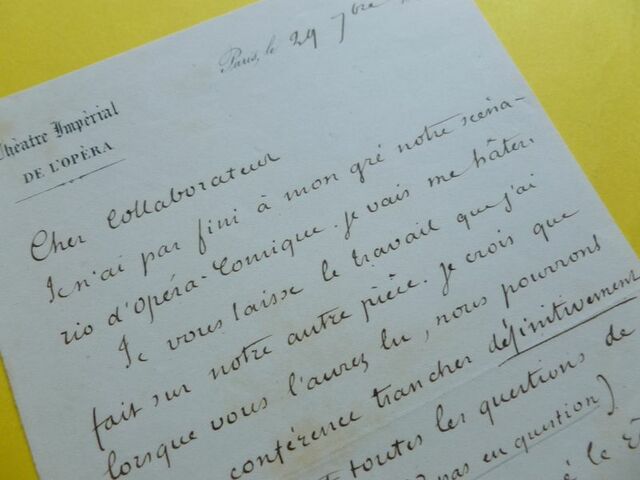 Paris, le 29 7bre
Théâtre Impérial
DE L'OPÉRA
Cher Collaborateur
Je n'ai pas fini à mon gré notre scéna-
rio d'Opéra-Comique. je vais me hâter.
Je vous laisse le travail que j'ai
fait sur notre autre pièce. je crois que
lorsque vous l'aurez lu, nous pourrons
conférence trancher définitivement
toutes les questions de
pas en question)
é le